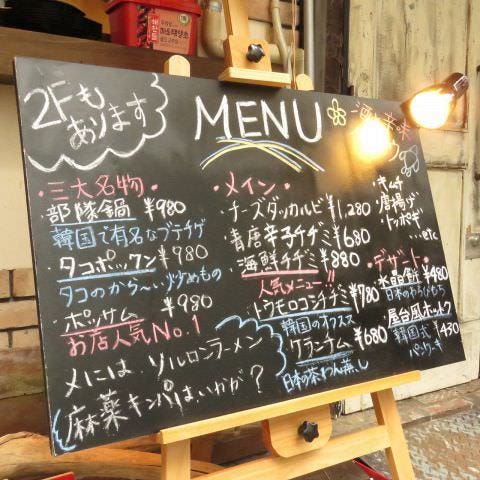 2Fも
あります
MENU
酒と辛味
・三大名物・
部隊鍋 ¥980
韓国で有名なプデチゲ
タコポックン ¥980
タコのから〜い炒めもの
ポッサム ¥980
お店人気No.1
〆には、ソルロンラーメン
麻薬キンパはいかが?
・メイン・
チーズダッカルビ ¥1,280
青唐辛子チヂミ ¥680
海鮮チヂミ ¥880
人気メニュー!!
トウモロコシチヂミ ¥780
韓国のオフクス
ケランチム ¥680
日本の茶わん蒸し
・キムチ
・唐揚げ
・トッポギ
...etc
・デザート・
水晶餅 ¥480
日本のわらびもち
屋台風ホットク
韓国式 ¥430
パンケーキ